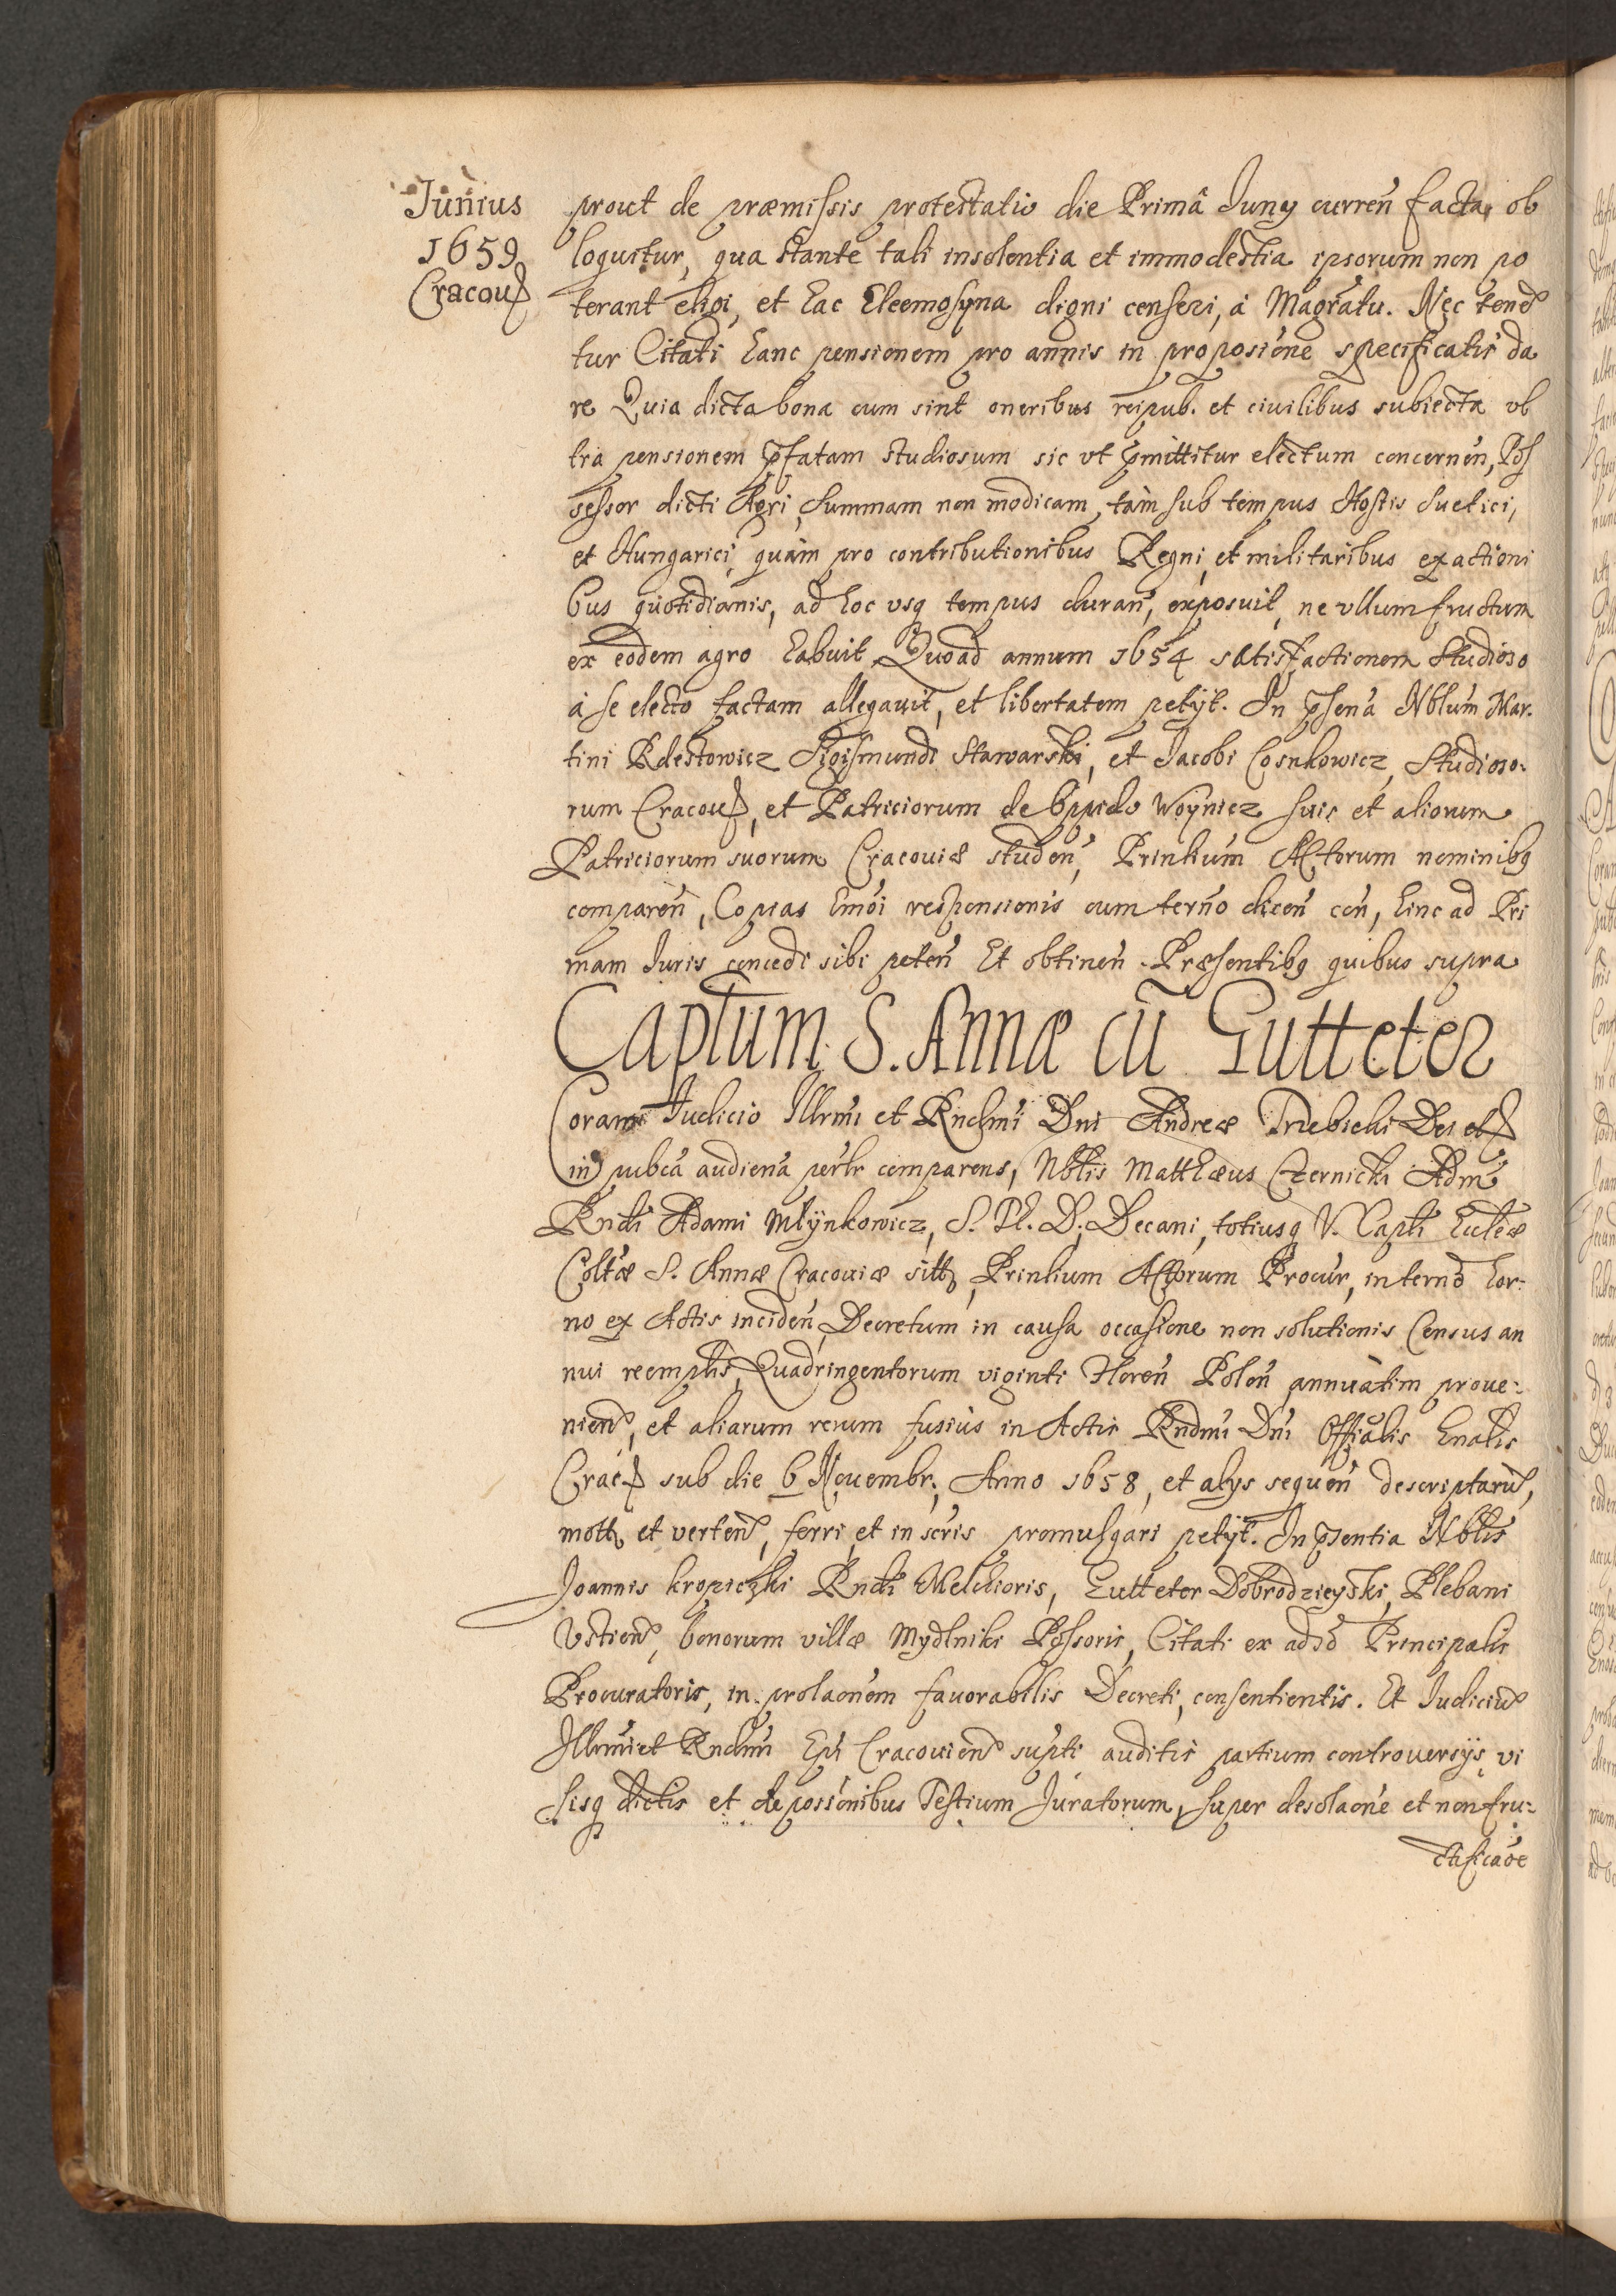 Junius
1659
Cracou
prout de præmissis protestatio die Primâ Juny curren̄ facta, ob
loquitur, qua stante tali insolentia et immodestia ipsorum non po
terant eligi, et hac Eleemosyna digni censeri, à Magratu. Nec tenen
tur Citati hanc pensionem pro annis in proposiōne specificatis da
re Quia dicta bona cum sint oneribus reipub. et ciuilibus subiecta vl
tra pensionem p̄fatam studiosum sic vt p̄mittitur electum concernen̄, Pos
sessor dicti Agri, summam non modicam, tàm sub tempus Hostis Suetici,
et Hungarici, quàm pro contributionibus Regni, et militaribus exactioni
bus quotidianis, ad hoc vsq tempus duran̄, exposuit, ne vllum fructum
ex eodem agro habuit Quoad annum 1654 satisfactionem Studioso
à se electo factam allegauit, et libertatem petÿt. In p̄senā Nblum Mar.
tini Rdestowicz Sigismundi Stawarski, et Jacobi Cosnkowicz, Studioso.
rum Cracou, et Patriciorum de Oppido Woynicz suis et aliorum
Patriciorum suorum Cracouiæ studen̄, Prinlium Actorum nominibq
comparen̄, Copias hmōi responsionis cum terno dicen̄ con̄, hinc ad Pri
mam Juris concedi sibi peten̄ Et obtinen̄. Præsentibq quibus supra
Captum S. Annæ cū Gutteter
Coram Judicio Illrmi et Rndmi Dni Andreæ Trzebicki Dei et
in pubca audiena perlr comparens, Nblis Matthæus Czernicki Adm
Rndi Adami Młynkowicz, S. Th. D. Decani, totiusq V. Capli Eccleæ
Collæ S. Annæ Cracouiæ sitt, Prinlium Actorum Procur, in terno hor:
no ex Actis inciden̄, Decretum in causa occasione non solutionis Census an
nui reemplis, Quadringentorum viginti Floren̄ Polon̄ annuatim proue:
nien, et aliarum rerum fusiùs in Actis Rndmi Dni Officialis Gnalis
Crac sub die 6 Nouembr. Anno 1658, et alys sequen̄ descriptarū,
mott, et verten, ferri, et in scris promulgari petÿt. In p̄sentia Nblis
Joannis kropiczki Rndi Melchioris, Gutteter Dobrodzieyski, Plebani
Vstien, bonorum villæ Mydlniki Possoris, Citati ex adio Principalis
Procuratoris, in prolaonem fauorabilis Decreti, consentientis. Et Judiciū
Illrmi et Rndmi Epi Cracouien supti auditis partium controuersÿs, vi
sisq dictis et deposiōnibus Testium Juratorum, super desolaone et non fru:
ctificaōe